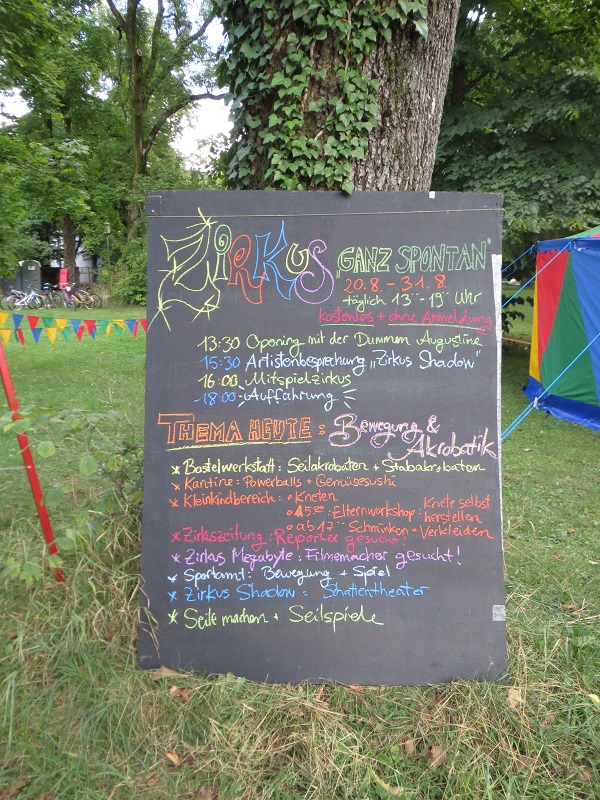 ZIRKUS „GANZ SPONTAN"
20.8. - 31.8.
täglich 13°° - 19°° Uhr
kostenlos + ohne Anmeldung
13:30 Opening mit der Dummen Augustine
15:30 Artistenbesprechung „Zirkus Shadow"
16:00 Mitspielzirkus
18:00 Aufführung
THEMA HEUTE: Bewegung &
Akrobatik
* Bastelwerkstatt: Seilakrobaten + Stabakrobaten
* Kantine: Powerballs + Gemüsesushi
* Kleinkindbereich: Kneten
Elternworkshop: Knete selbst
herstellen
ab 17°° Schminken + Verkleiden
* Zirkuszeitung: Reporter gesucht!
* Zirkus Megabyte: Filmemacher gesucht!
* Sportamt: Bewegung + Spiel
* Zirkus Shadow: Schattentheater
* Seile machen + Seilspiele